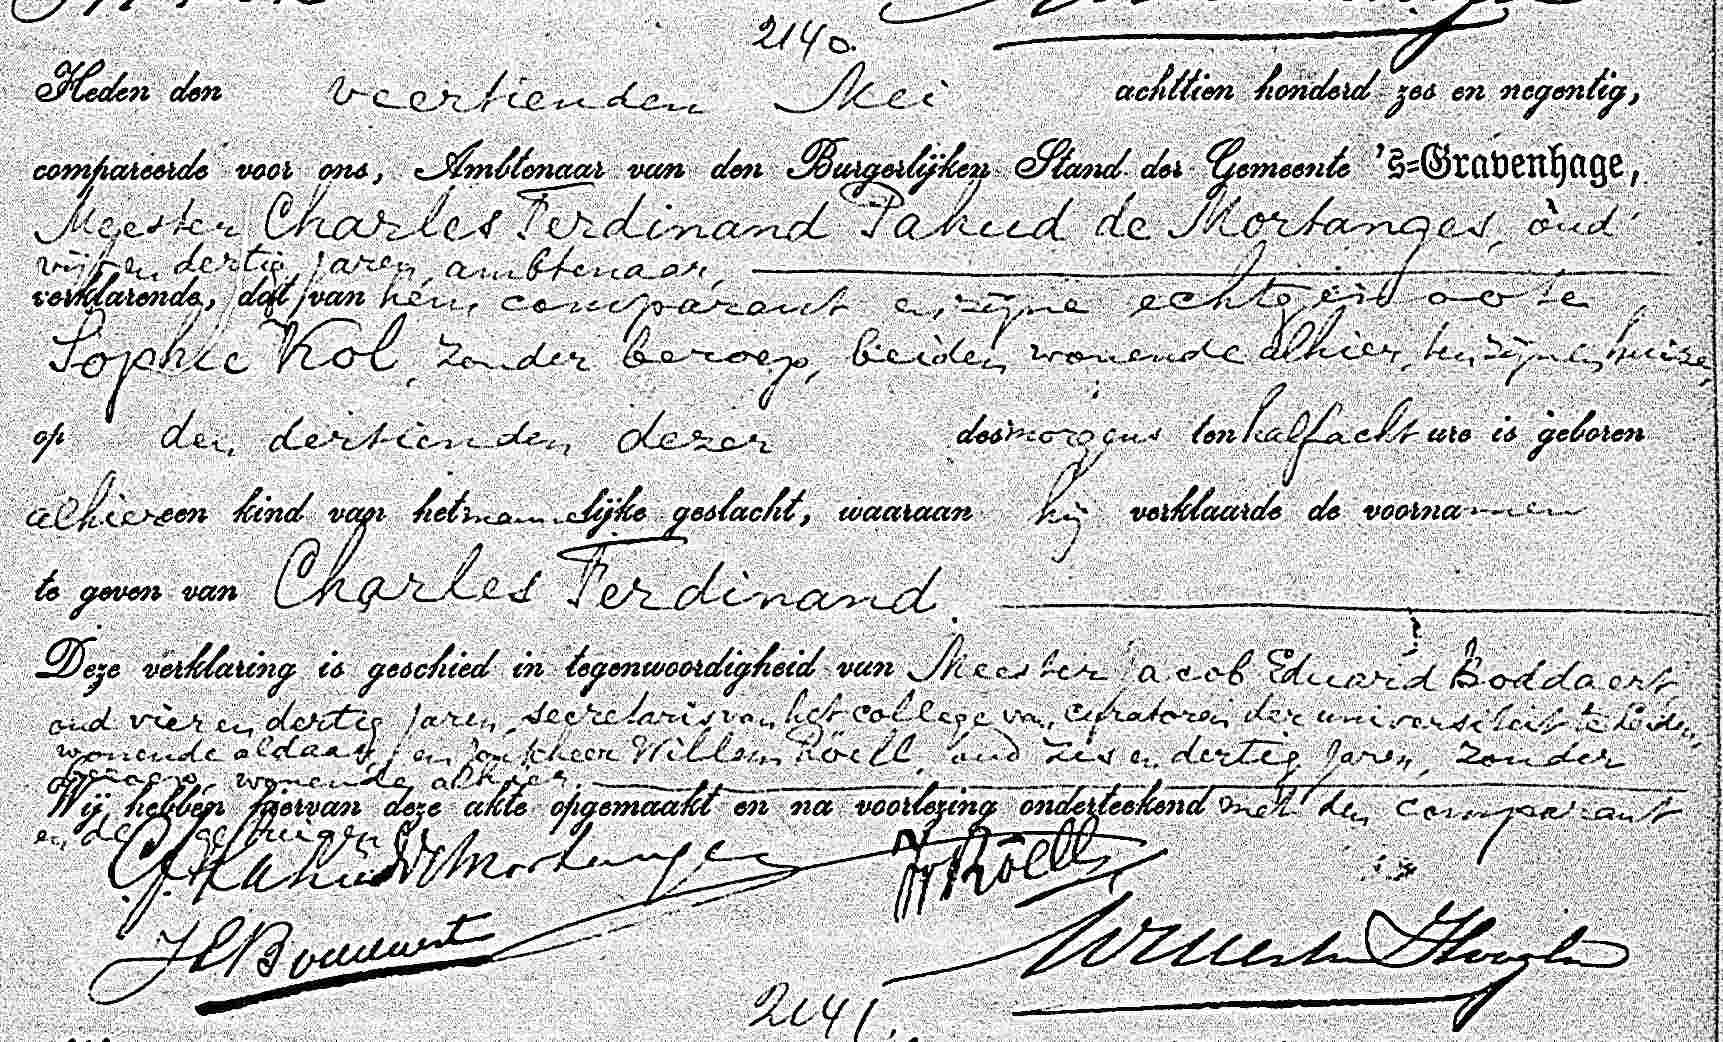 2140.
Heden den veertienden Mei achttien honderd zes en negentig,
compareerde voor ons, Ambtenaar van den Burgerlijken Stand der Gemeente 's=Gravenhage,
Meester Charles Ferdinand Pahud de Mortanges, oud
vijf en dertig jaren, ambtenaar,
verklarende, dat van hem comparant en zijne echtgenoote
Sophie Kol, zonder beroep, beiden wonende alhier, ten zijnen huize,
op den dertienden dezer des morgens ten half acht ure is geboren
alhier een kind van het mannelijke geslacht, waaraan hij verklaarde de voornamen
te geven van Charles Ferdinand.
Deze verklaring is geschied in tegenwoordigheid van Meester Jacob Eduard Boddaert,
oud vier en dertig jaren, secretaris van het college van curatoren der universiteit te Leiden,
wonende aldaar, en Jonkheer Willem Röell, oud zes en dertig jaren, zonder
beroep, wonende alhier.
Wij hebben hiervan deze akte opgemaakt en na voorlezing onderteekend met den comparant
en de getuigen
CF Pahud de Mortanges WRöell
JE Boddaert
2141.